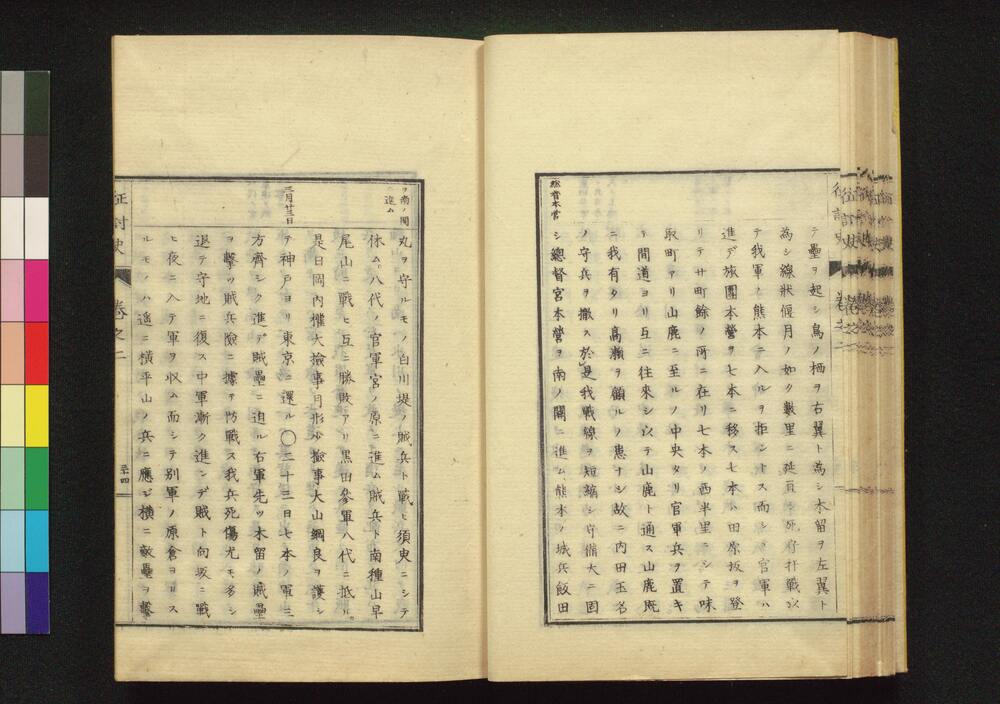 テ壘ヲ起シ鳥ノ栖ヲ右翼ト為シ木留ヲ左翼ト
為シ線狀偃月ノ如ク數里ニ延亘シ死守扞戰以
テ我軍ノ熊本ニ入ルヲ拒ントス而シテ官軍ハ
進デ旅團本營ヲ七本ニ移ス七本ハ田原坂ヲ登
リテ廿町餘ノ所ニ在リ七本ノ西半里ニシテ味
取町アリ山鹿ニ至ルノ中央タリ官軍兵ヲ置キ
間道ヨリ互ニ往來シ以テ山鹿ト通ス山鹿既
ニ我有タリ高瀬ヲ顧ルノ患ナシ故ニ内田玉名
ノ守兵ヲ撤ス於是我戰線ヲ短縮シ守備大ニ固
總督本營
シ總督宮本營ヲ南ノ關ニ進ム熊本ノ城兵飯田
ヲ南ノ關
ニ進ム
丸ヲ守ルモノ白川堤ノ賊兵ト戰ヒ須臾ニシテ
休ム八代ノ官軍宮ノ原ニ進ム賊兵ト南種山早
尾山ニ戰ヒ互ニ勝敗アリ黒田參軍八代ニ抵ル
是日岡内權大撿事月形少撿事大山綱良ヲ護シ
三月廿三日
テ神戸ヨリ東京ニ還ル〇二十三日七本ノ軍三
方齊シク進デ賊壘ニ迫ル右軍先ツ木留ノ賊壘
ヲ擊ツ賊兵險ニ據テ防戰ス我兵死傷尤モ多シ
退テ守地ニ復ス中軍漸ク進ンデ賊ト向坂ニ戰
ヒ夜ニ入テ軍ヲ收ム而シテ別軍ノ原倉ヨリス
ルモノハ遙ニ横平山ノ兵ニ應ジ横ニ敵壘ヲ擊
征討史
卷之二
三十四